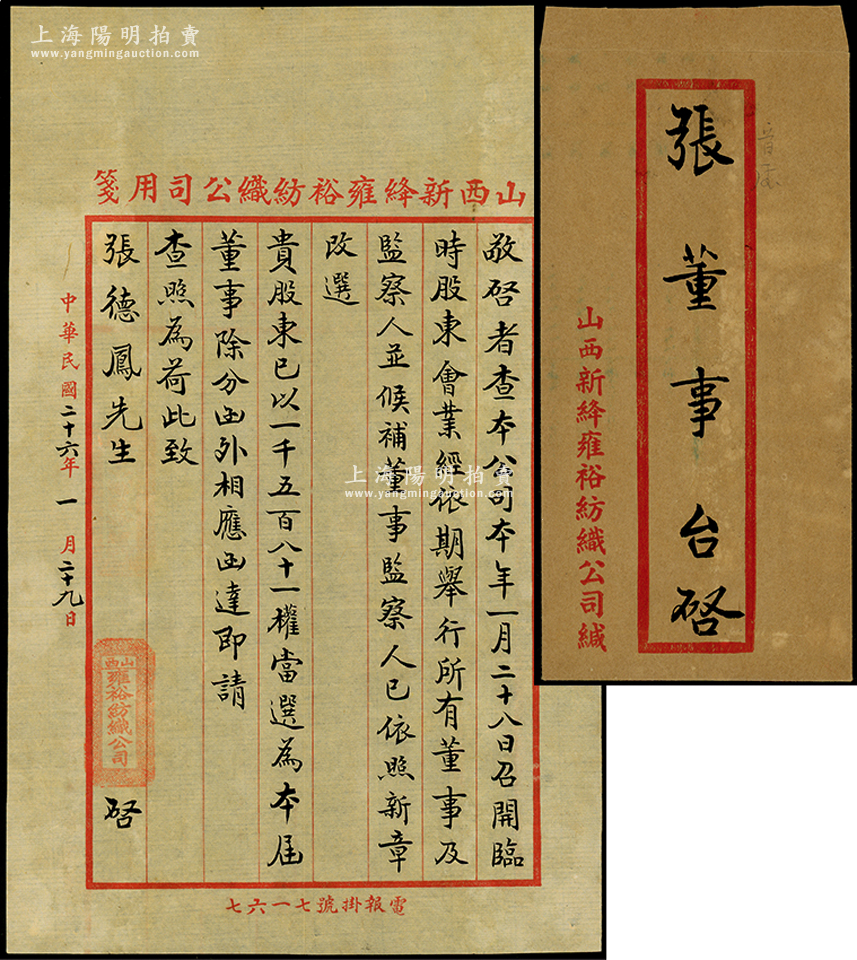 上海陽明拍賣
www.yangmingauction.com
山西新絳雍裕紡織公司用箋
敬啓者查本公司本年一月二十八日召開臨
時股東會業經依期舉行所有董事及
監察人並候補董事監察人已依照新章
改選
貴股東已以一千五百八十一權當選為本屆
董事除分函外相應函達即請
查照為荷此致
張德鳳先生
山西雍裕紡織公司
啓
中華民國二十六年一月二十九日
電報掛號七一六七
上海陽明拍賣
www.yangmingauction.com
張董事台啓
山西新絳雍裕紡織公司緘